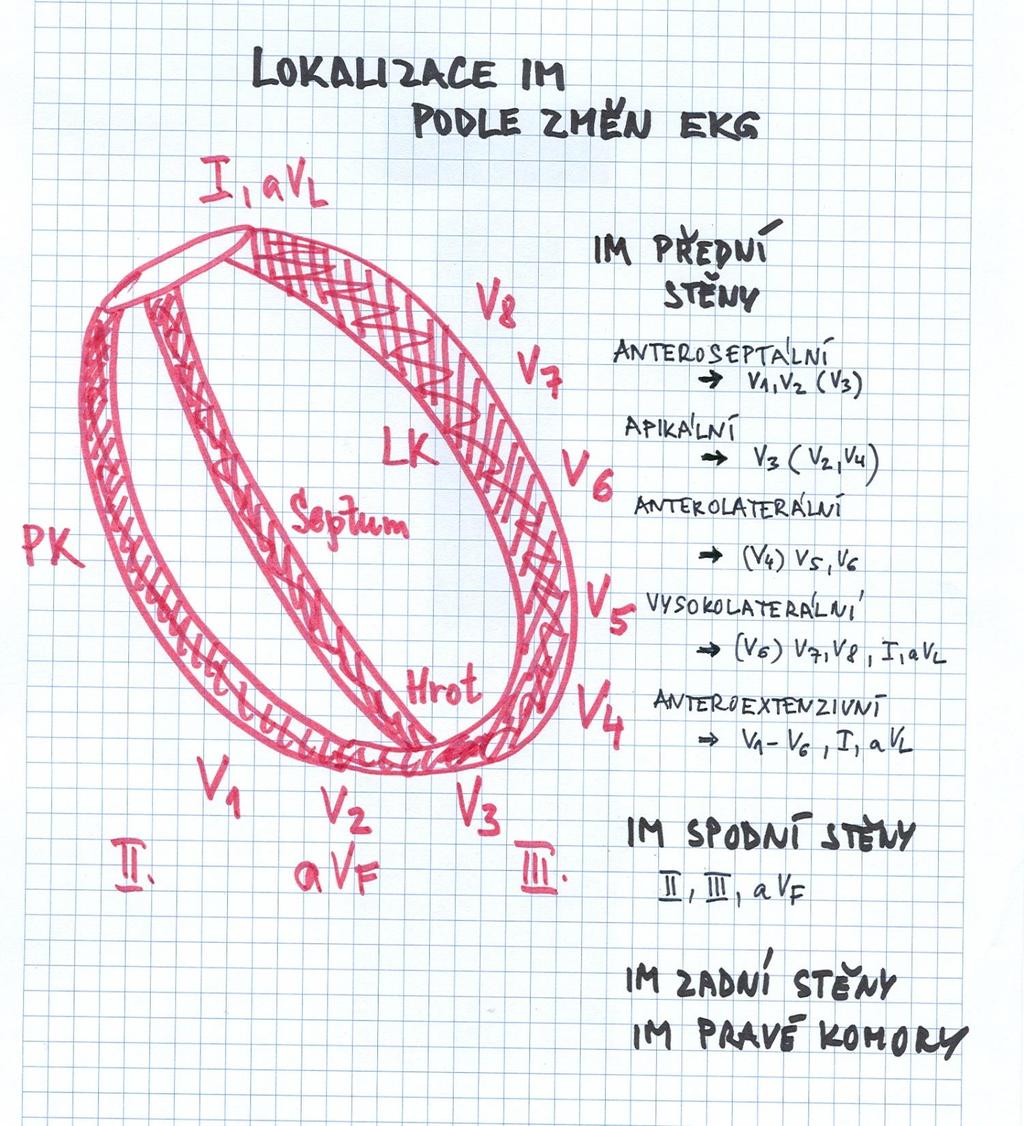 LOKALIZACE IM
PODLE ZMĚN EKG
I, aVL
V8
V7
V6
V5
V4
LK
Septum
PK
Hrot
V1
V2
V3
II.
aVF
III.
IM PŘEDNÍ
STĚNY
ANTEROSEPTÁLNÍ
→ V1, V2 (V3)
APIKÁLNÍ
→ V3 (V2, V4)
ANTEROLATERÁLNÍ
→ (V4) V5, V6
VYSOKOLATERÁLNÍ
→ (V6) V7, V8, I, aVL
ANTEROEXTENZIVNÍ
→ V1-V6, I, aVL
IM SPODNÍ STĚNY
II, III, aVF
IM ZADNÍ STĚNY
IM PRAVÉ KOMORY